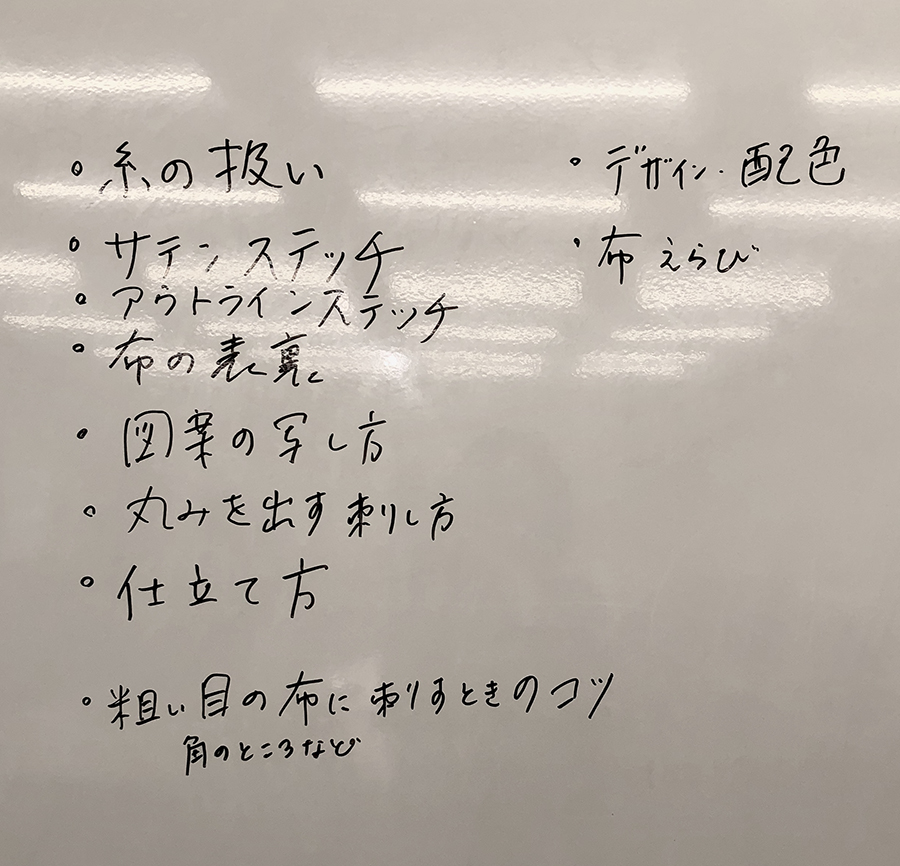 。糸の扱い
。サテンステッチ
。アウトラインステッチ
。布の表裏
。図案の写し方
。丸みを出す刺し方
。仕立て方
。粗い目の布に刺すときのコツ
角のところなど
。デザイン・配色
。布えらび